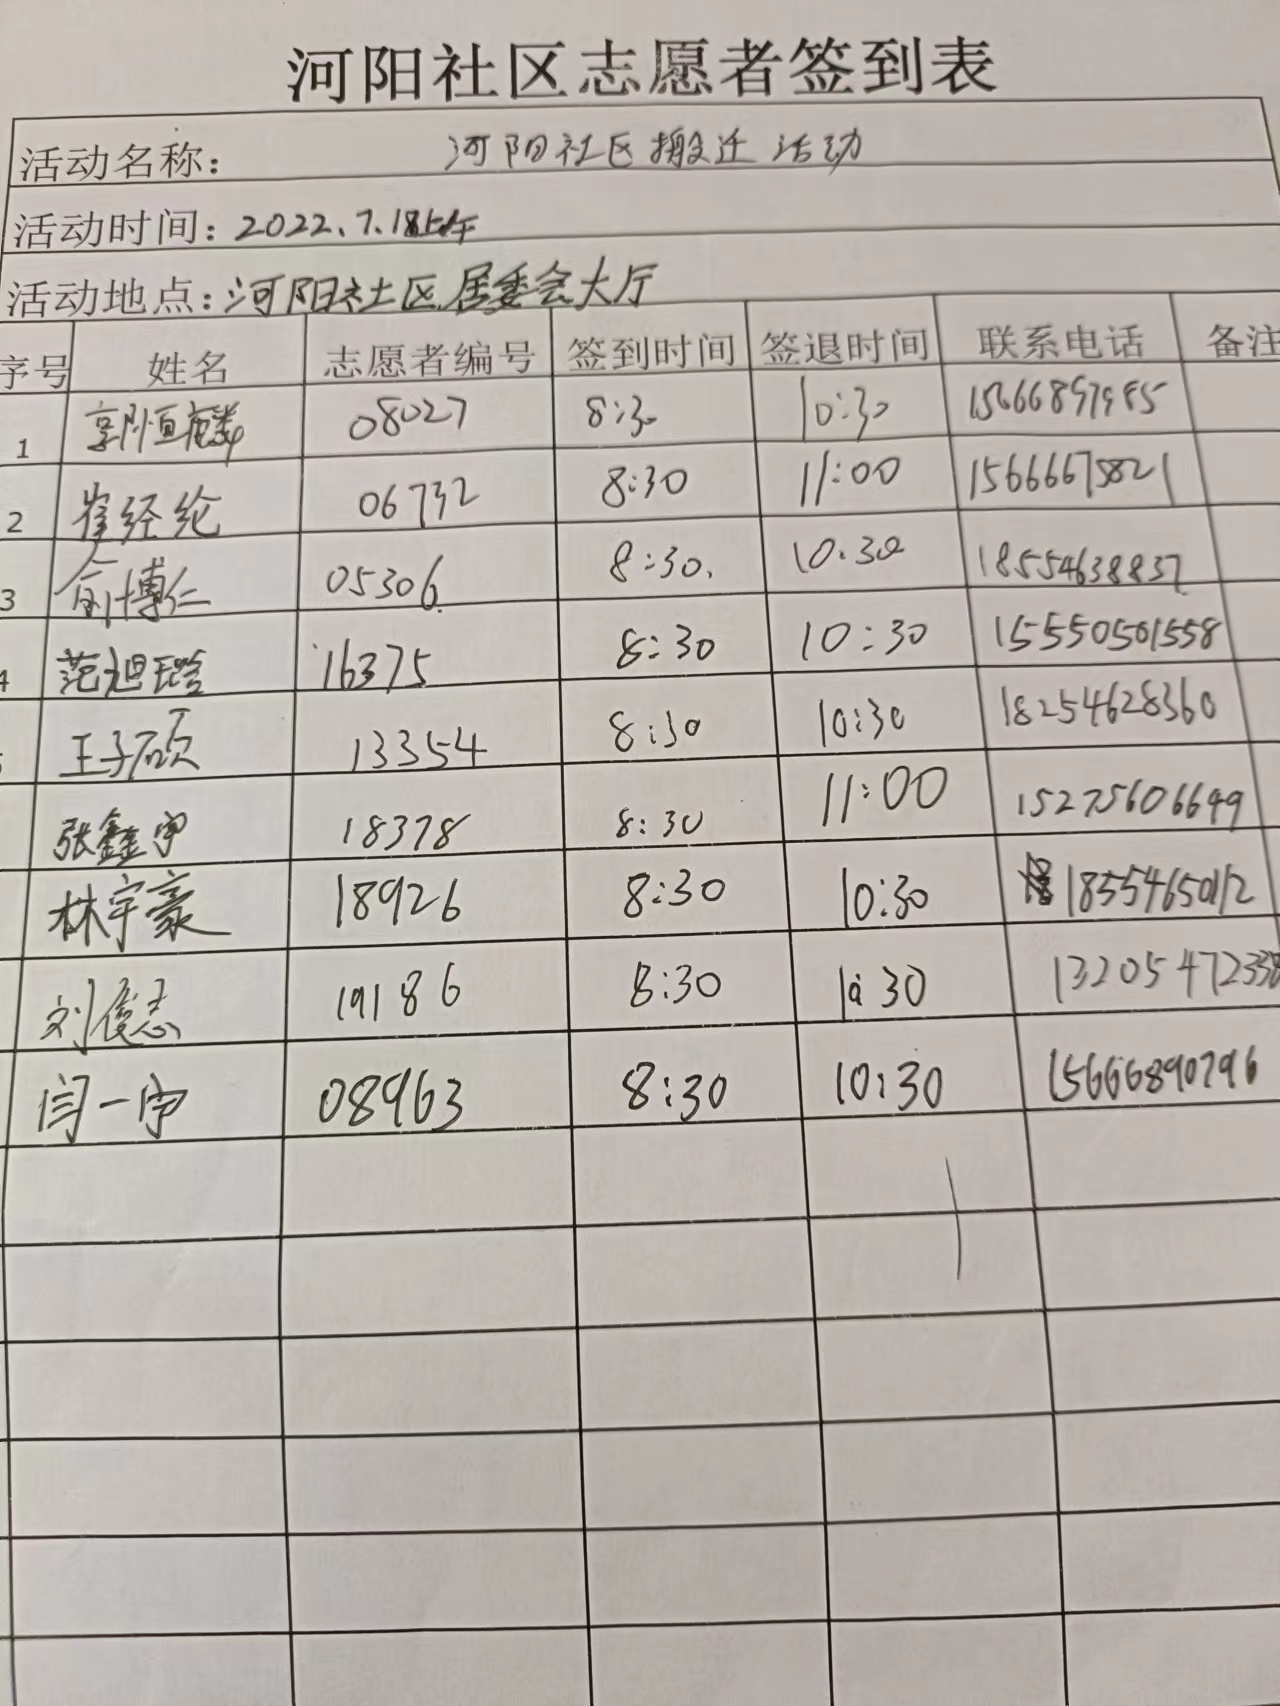 河阳社区志愿者签到表
活动名称： 河阳社区搬迁活动
活动时间：2022.7.18上午
活动地点：河阳社区居委会大厅
序号 姓名 志愿者编号 签到时间 签退时间 联系电话 备注
1 恒麟 08027 8:30 10:30
2 崔经纶 06732 8:30 11:00 15666675821
3 俞博仁 05306 8:30. 10:30 18554638837
4 范旭晗 16375 8:30 10:30 15550501558
王子硕 13354 8:30 10:30 18254628360
张鑫宇 18378 8:30 11:00 15275606649
林宇豪 18926 8:30 10:30 18554650112
刘俊志 19186 8:30 10:30 13205472338
闫一宁 08963 8:30 10:30 15666890796